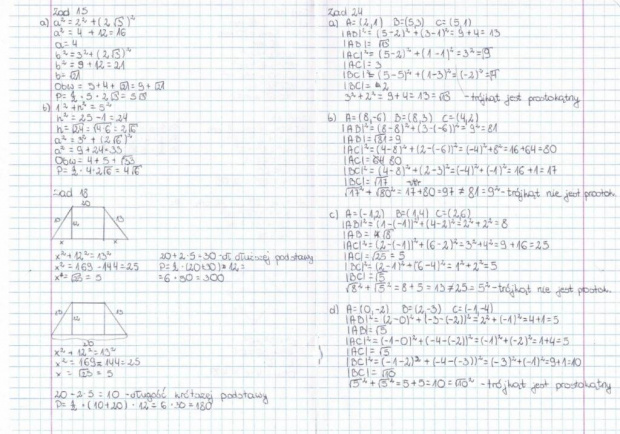 Zad 15
a) a² = 2² + (2√3)²
a² = 4 + 12 = 16
a = 4
b² = 3² + (2√3)²
b² = 9 + 12 = 21
b = √21
Obw = 5 + 4 + √21 = 9 + √21
P = ½ · 5 · 2√3 = 5√3
b) 1² + h² = 5²
h² = 25 - 1 = 24
h = √24 = √4·6 = 2√6
a² = 3² + (2√6)²
a² = 9 + 24 = 33
Obw = 4 + 5 + √33
P = ½ · 4 · 2√6 = 4√6
Zad 18
20
13 12 13
x x
x² + 12² = 13²
x² = 169 - 144 = 25
x² = √25 = 5
20 + 2·5 = 30 - dł dłuższej podstawy
P = ½ · (20 + 30) · 12 =
= 6 · 50 = 300
13 12 13
20
x² + 12² = 13²
x² = 169 = 144 = 25
x = √25 = 5
20 - 2·5 = 10 - długość krótszej podstawy
P = ½ · (10 + 20) · 12 = 6 · 30 = 180
Zad 24
a) A = (2,1) B = (5,3) C = (5,1)
|AB|² = (5-2)² + (3-1)² = 9 + 4 = 13
|AB| = √13
|AC|² = (5-2)² + (1-1)² = 3² = 9
|AC| = 3
|BC|² = (5-5)² + (1-3)² = (-2)² = 4
|BC| = 2
3² + 2² = 9 + 4 = 13 = √13 - trójkąt jest prostokątny
b) A = (8,-6) B = (8,3) C = (4,2)
|AB|² = (8-8)² + (3-(-6))² = 9² = 81
|AB| = √81 = 9
|AC|² = (4-8)² + (2-(-6))² = (-4)² + 8² = 16 + 64 = 80
|AC| = 80
|BC|² = (4-8)² + (2-3)² = (-4)² + (-1)² = 16 + 1 = 17
|BC| = √17
√17² + √80² = 17 + 80 = 97 ≠ 81 = 9² - trójkąt nie jest prostok.
c) A = (-1,2) B = (1,4) C = (2,6)
|AB|² = (1-(-1))² + (4-2)² = 2² + 2² = 8
|AB| = √8
|AC|² = (2-(-1))² + (6-2)² = 3² + 4² = 9 + 16 = 25
|AC| = √25 = 5
|BC|² = (2-1)² + (6-4)² = 1² + 2² = 5
|BC| = √5
√8² + √5² = 8 + 5 = 13 ≠ 25 = 5² - trójkąt nie jest prostok.
d) A = (0,-2) B = (2,-3) C = (-1,-4)
|AB|² = (2-0)² + (-3-(-2))² = 2² + (-1)² = 4 + 1 = 5
|AB| = √5
|AC|² = (-1-0)² + (-4-(-2))² = (-1)² + (-2)² = 1 + 4 = 5
|AC| = √5
|BC|² = (-1-2)² + (-4-(-3))² = (-3)² + (-1)² = 9 + 1 = 10
|BC| = √10
√5² + √5² = 5 + 5 = 10 = √10² - trójkąt jest prostokątny